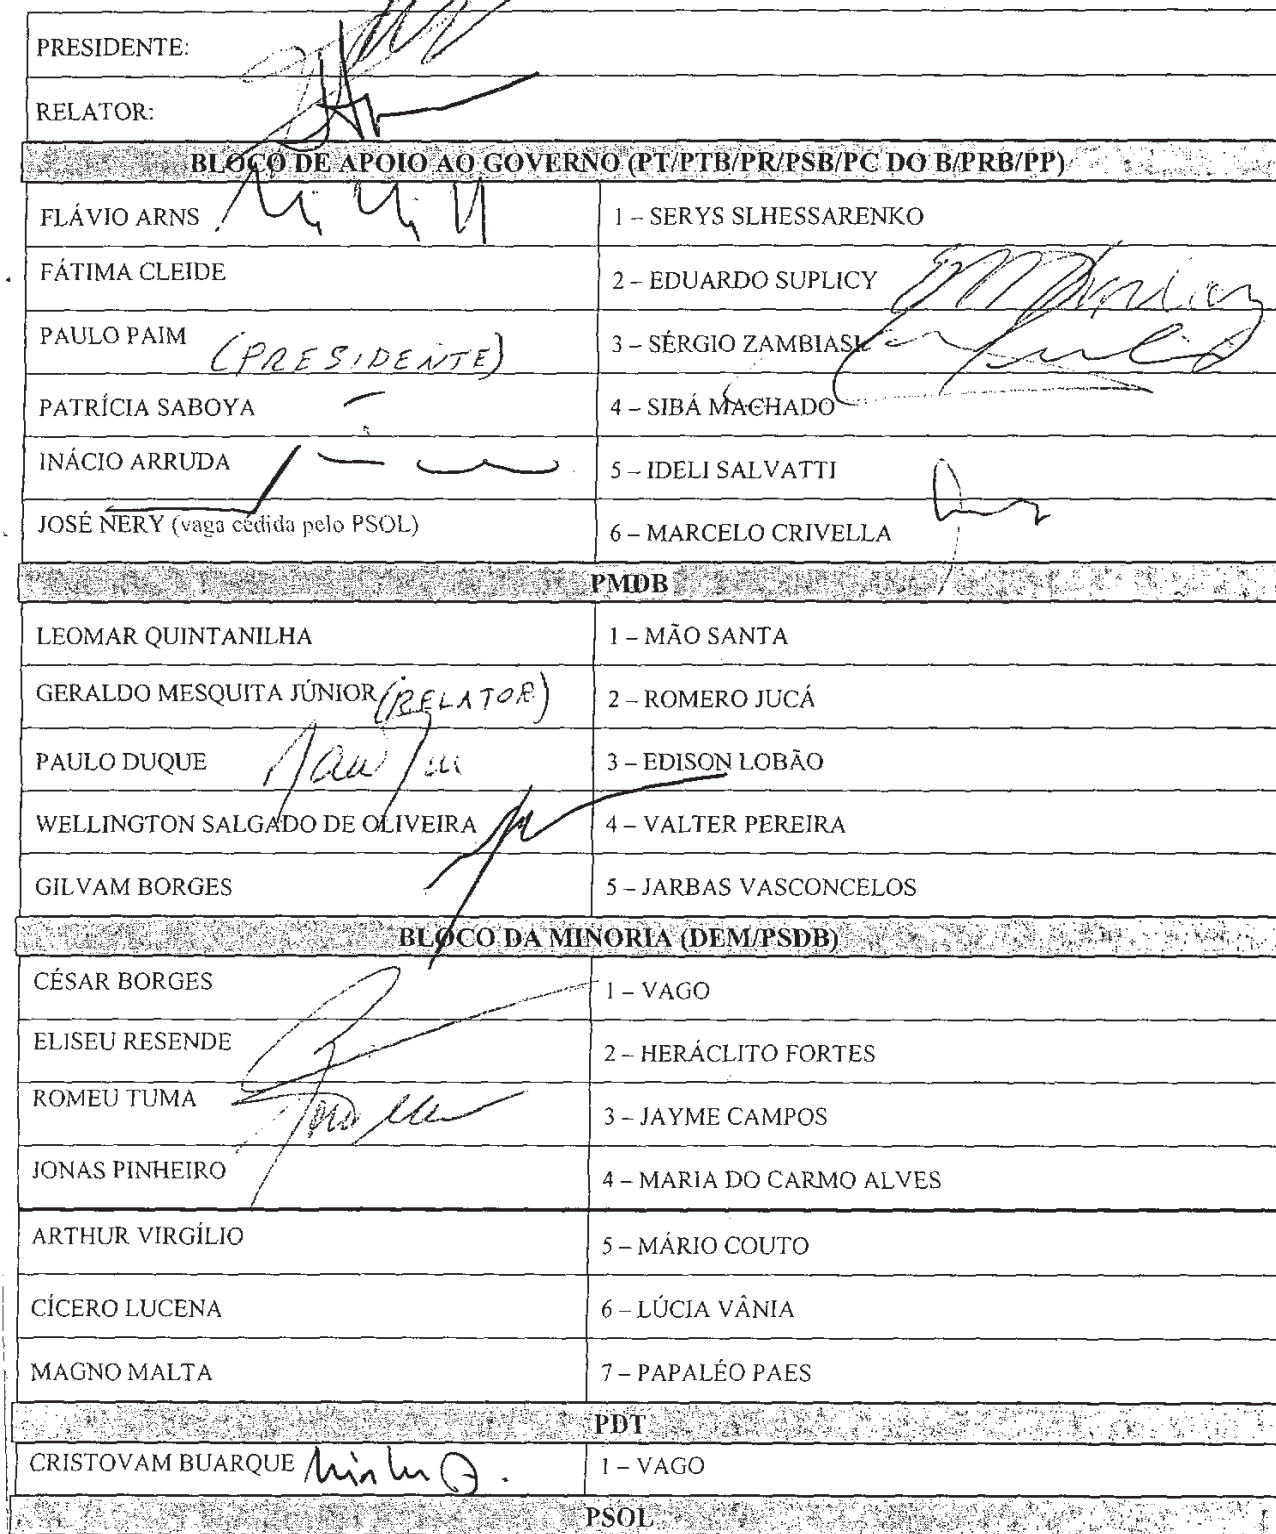 PRESIDENTE:
RELATOR:
BLOCO DE APOIO AO GOVERNO (PT/PTB/PR/PSB/PC DO B/PRB/PP)
FLÁVIO ARNS 1 – SERYS SLHESSARENKO
FÁTIMA CLEIDE 2 – EDUARDO SUPLICY
PAULO PAIM (PRESIDENTE) 3 – SÉRGIO ZAMBIASI
PATRÍCIA SABOYA 4 – SIBÁ MACHADO
INÁCIO ARRUDA 5 – IDELI SALVATTI
JOSÉ NERY (vaga cedida pelo PSOL) 6 – MARCELO CRIVELLA
PMDB
LEOMAR QUINTANILHA 1 – MÃO SANTA
GERALDO MESQUITA JÚNIOR (RELATOR) 2 – ROMERO JUCÁ
PAULO DUQUE 3 – EDISON LOBÃO
WELLINGTON SALGADO DE OLIVEIRA 4 – VALTER PEREIRA
GILVAM BORGES 5 – JARBAS VASCONCELOS
BLOCO DA MINORIA (DEM/PSDB)
CÉSAR BORGES 1 – VAGO
ELISEU RESENDE 2 – HERÁCLITO FORTES
ROMEU TUMA 3 – JAYME CAMPOS
JONAS PINHEIRO 4 – MARIA DO CARMO ALVES
ARTHUR VIRGÍLIO 5 – MÁRIO COUTO
CÍCERO LUCENA 6 – LÚCIA VÂNIA
MAGNO MALTA 7 – PAPALÉO PAES
PDT
CRISTOVAM BUARQUE 1 – VAGO
PSOL